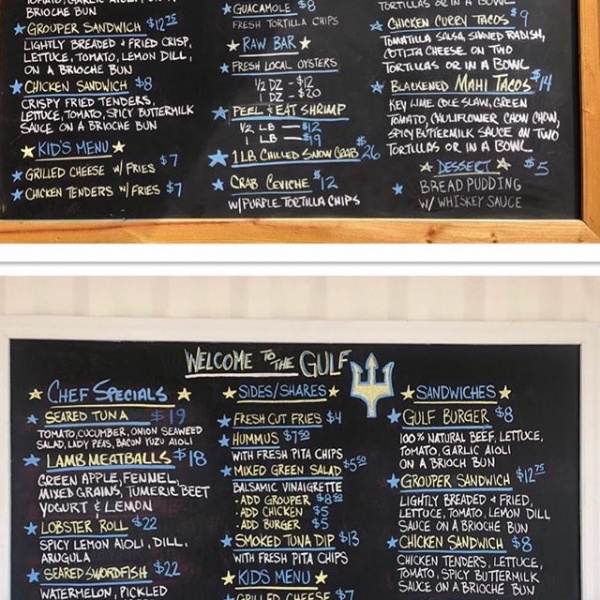 BRIOCHE BUN
GROUPER SANDWICH $12.75
LIGHTLY BREADED & FRIED CRISP,
LETTUCE, TOMATO, LEMON DILL,
ON A BRIOCHE BUN
CHICKEN SANDWICH $8
CRISPY FRIED TENDERS,
LETTUCE, TOMATO, SPICY BUTTERMILK
SAUCE ON A BRIOCHE BUN
KID'S MENU
GRILLED CHEESE W/ FRIES $7
CHICKEN TENDERS W/ FRIES $7
GUACAMOLE $8
FRESH TORTILLA CHIPS
RAW BAR
FRESH LOCAL OYSTERS
1/2 DZ - $12
1 DZ - $20
PEEL & EAT SHRIMP
1/2 LB — $12
1 LB — $19
1 LB CHILLED SNOW CRAB $26
CRAB CEVICHE $12
W/ PURPLE TORTILLA CHIPS
TORTILLAS OR IN A BOWL
CHICKEN CURRY TACOS $9
TOMATILLA SALSA, SHAVED RADISH,
COTIJA CHEESE ON TWO
TORTILLAS OR IN A BOWL
BLACKENED MAHI TACOS $14
KEY LIME COLE SLAW, GREEN
TOMATO, CAULIFLOWER CHOW CHOW,
SPICY BUTTERMILK SAUCE ON TWO
TORTILLAS OR IN A BOWL
DESSERT $5
BREAD PUDDING
W/ WHISKEY SAUCE
WELCOME TO THE GULF
CHEF SPECIALS
SEARED TUNA $19
TOMATO, CUCUMBER, ONION SEAWEED
SALAD, LADY PEAS, BACON YUZU AIOLI
LAMB MEATBALLS $18
GREEN APPLE, FENNEL,
MIXED GRAINS, TUMERIC BEET
YOGURT & LEMON
LOBSTER ROLL $22
SPICY LEMON AIOLI, DILL,
ARUGULA
SEARED SWORDFISH $22
WATERMELON, PICKLED
SIDES/SHARES
FRESH CUT FRIES $4
HUMMUS $7.50
WITH FRESH PITA CHIPS
MIXED GREEN SALAD $5.50
BALSAMIC VINAIGRETTE
· ADD GROUPER $8.50
· ADD CHICKEN $5
· ADD BURGER $5
SMOKED TUNA DIP $13
WITH FRESH PITA CHIPS
KIDS MENU
GRILLED CHEESE $7
SANDWICHES
GULF BURGER $8
100% NATURAL BEEF, LETTUCE,
TOMATO, GARLIC AIOLI
ON A BRIOCH BUN
GROUPER SANDWICH $12.75
LIGHTLY BREADED & FRIED,
LETTUCE, TOMATO, LEMON DILL
SAUCE ON A BRIOCHE BUN
CHICKEN SANDWICH $8
CHICKEN TENDERS, LETTUCE,
TOMATO, SPICY BUTTERMILK
SAUCE ON A BRIOCHE BUN